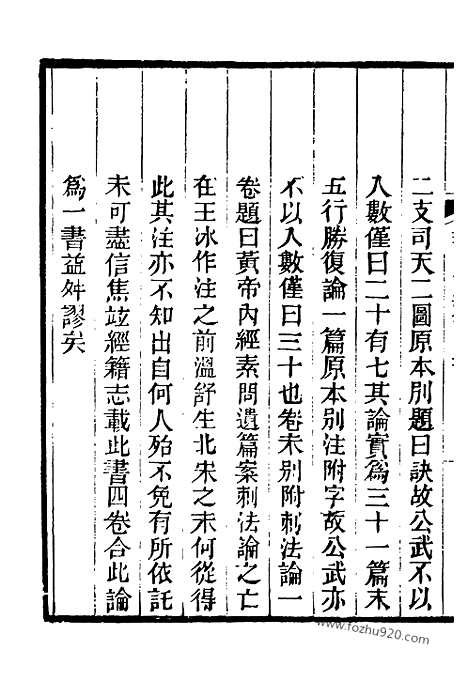 二支司天二圖原本別題曰訣故公武不以
入數僅曰二十有七其論實爲三十一篇末
五行勝復論一篇原本別注附字故公武亦
不以入數僅曰三十也卷末別附刺法論一
卷題曰黃帝內經素問遺篇案刺法論之亡
在王冰作注之前溫舒生北宋之末何從得
此其注亦不知出自何人殆不免有所依託
未可盡信焦竑經籍志載此書四卷合此論
爲一書益舛謬矣
www.fozhu920.com